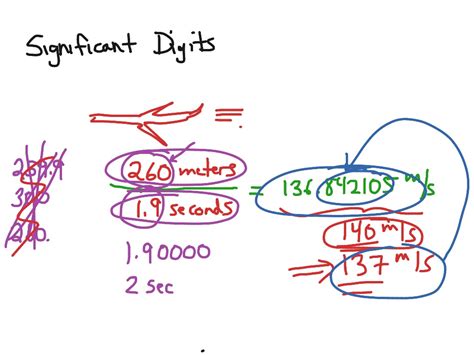 Significant Digits
260 meters
1.9 seconds
= 136.842105 m/s
140 m/s
137 m/s
1.90000
2 sec